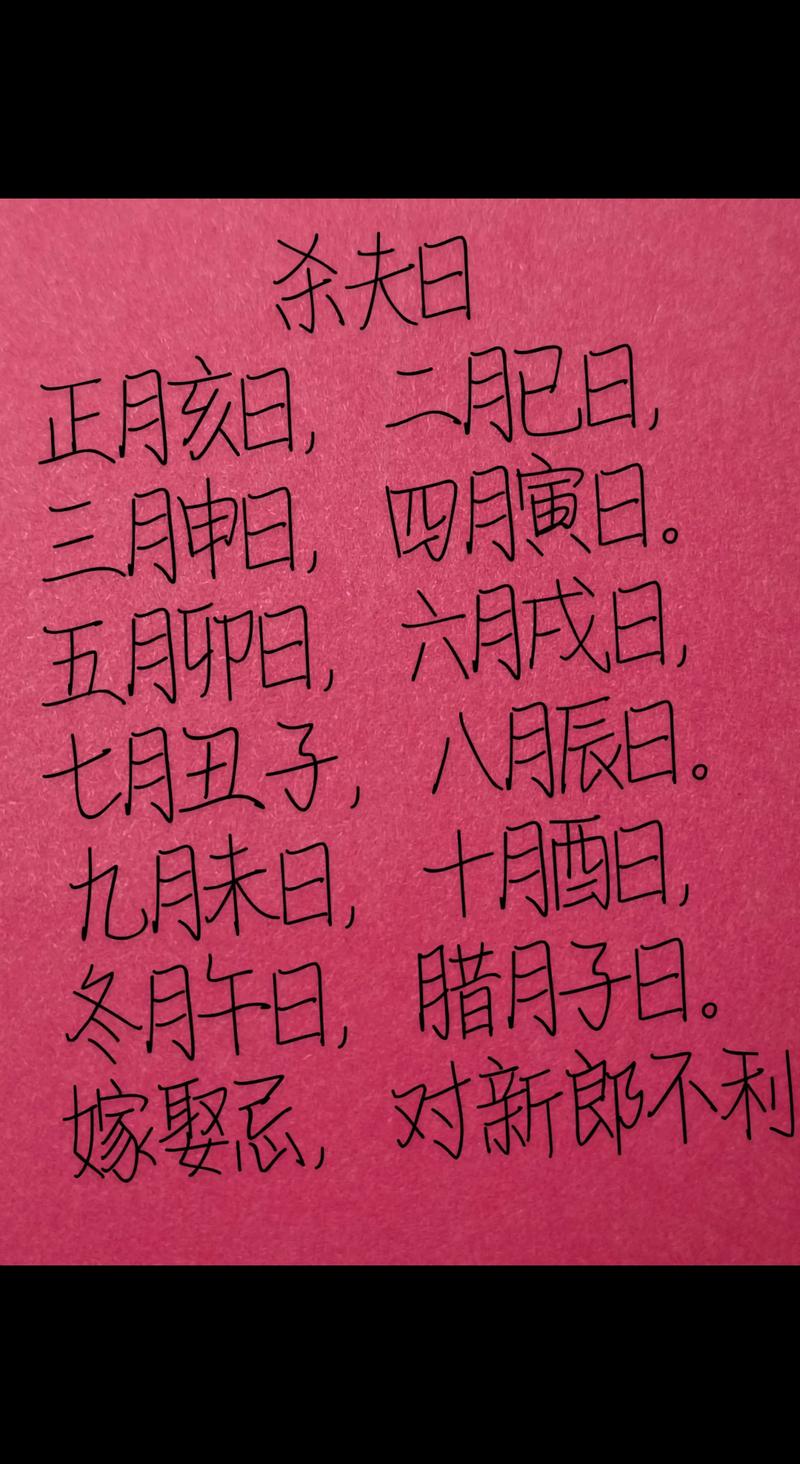 杀夫日
正月亥日, 二月巳日,
三月申日, 四月寅日。
五月卯日, 六月戌日,
七月丑子, 八月辰日。
九月未日, 十月酉日,
冬月午日, 腊月子日。
嫁娶忌, 对新郎不利